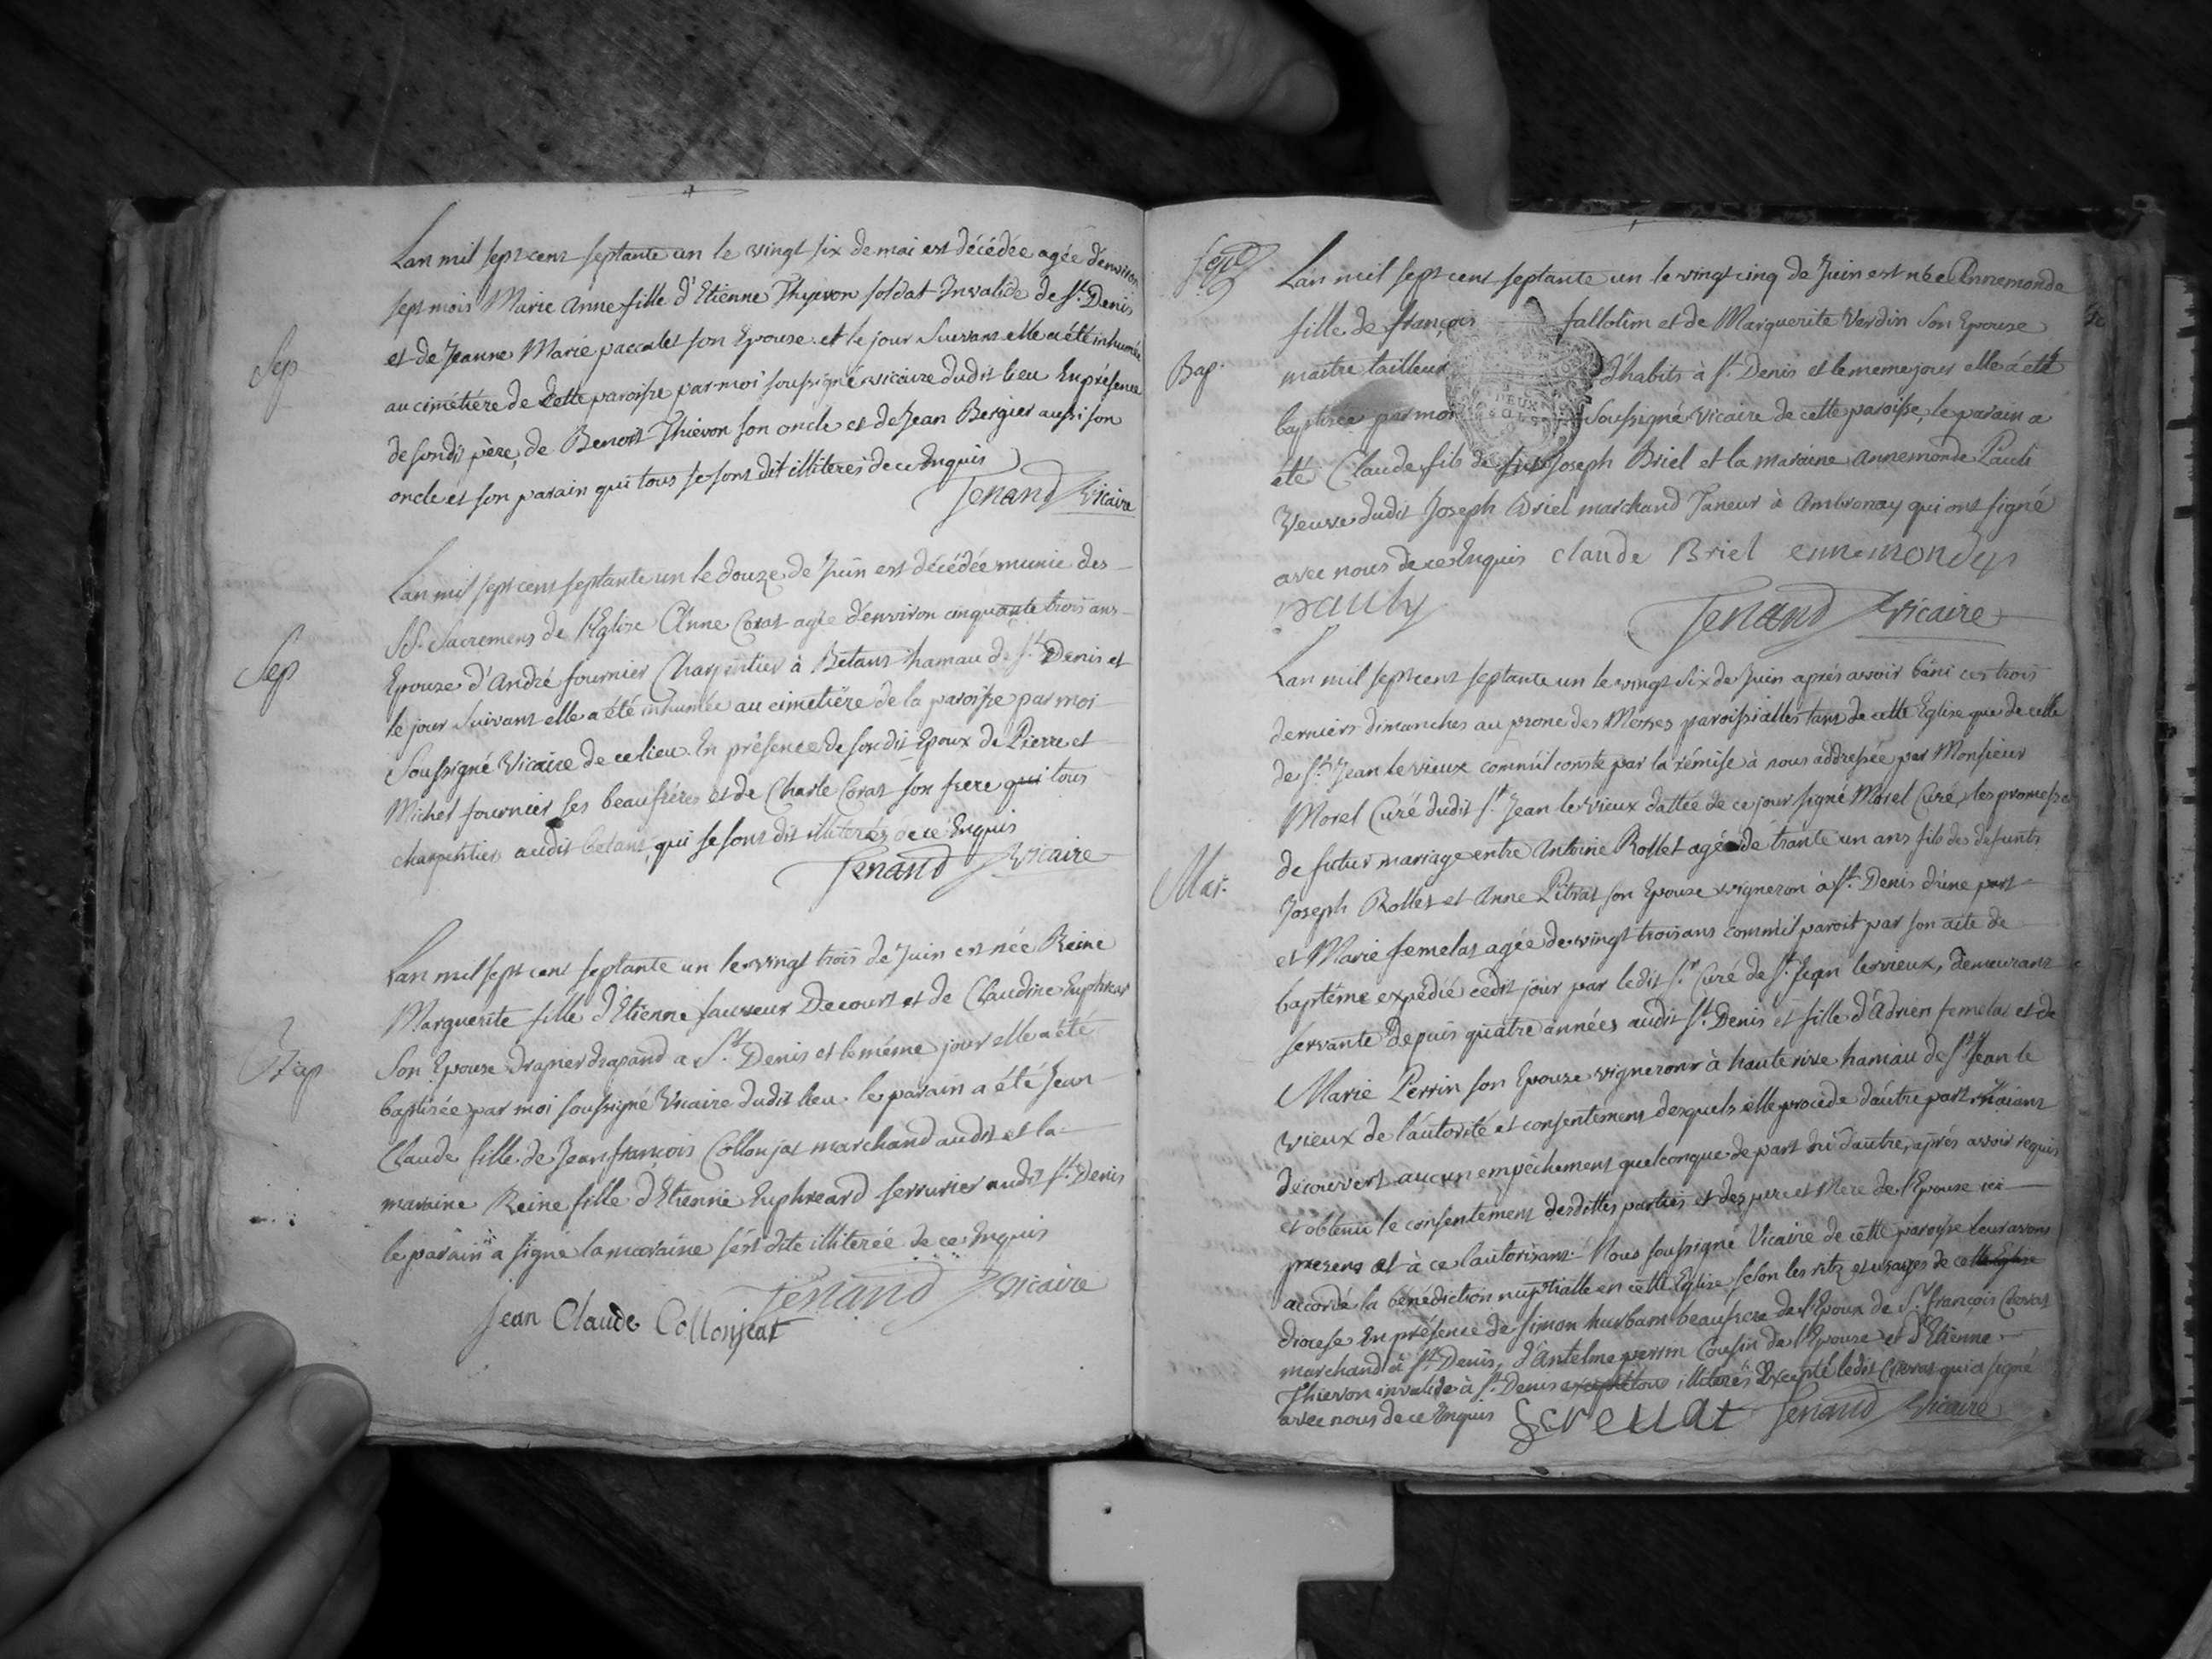 Lan mil sept cent septante un le vingt six de mai est décédée agée d'environ
sept mois Marie Anne fille d'Etienne Thyevon soldat Invalide de St. Denis
et de Jeanne Marie paccalet son Epouse et le jour Suivant elle a été inhumée
Sep
au cimétiére de Cette paroisse par moi soussigné vicaire dudit lieu En présence
de sondit père, de Benoit Thiévon son oncle et de Jean Bergier aussi son
oncle et son parain qui tous se sont dit illiterés de ce Enquis
Tenand Vicaire
Lan mil sept cent septante un le douze de Juin est décédée munie des
SS. Sacremens de l'Eglise Anne Corat agée d'environ cinquante trois ans
Sep
Epouze d'André fournier Charpentier à Bétans hamau de St. Denis et
le jour Suivant elle a été inhumée au cimetiére de la paroisse par moi
Soussigné Vicaire de ce lieu. En présence de sondit Epoux de Pierre et
Michel fournier ses beaufréres et de Charle Corat son frere qui tous
charpentier audit betans, qui se sont dit illiterés de ce Enquis
Tenand Vicaire
Lan mil sept cent septante un le vingt trois de Juin est née Reine
Marguerite fille d'Etienne sauveur Decourt et de Claudine Euphreard
Bap
Son Epouse drapier drapand a St. Denis et le méme jour elle a été
baptisée par moi soussigné Vicaire dudit lieu. le parain a été Jean
Claude fille de Jean francois Collonjat marchand audit et la
maraine Reine fille d'Etienne Euphreard serrurier audit St. Denis
le parain a signé la maraine s'est dite illiterée de ce Enquis
Tenand Vicaire
Jean Claude Collonjeat
Lan mil sept cent septante un le vingt cinq de Juin est née Annemonde
fille de françois fallolim et de Marguerite Verdin Son Epouse
Bap.
maitre tailleur d'habits à St. Denis et le meme jour elle a été
DEUX
SOLS
baptisée par moi Soussigné Vicaire de cette paroisse, le parain a
été Claude fils de Joseph Briel et la maraine annemonde Pauli
Veuve dudit Joseph Briel marchand Taneur à Ambronay qui ont signé
avec nous de ce Enquis claude Briel ennemonde
pauly
Tenand Vicaire
Lan mil sept cent septante un le vingt Six de Juin aprés avoir bâni ces trois
derniers dimanches au prone des Messes paroissialles tant de cette Eglise que de celle
de St. Jean le vieux comm'il conste par la rémise à nous addressée par Monsieur
Morel Curé dudit St. Jean le Vieux dattée de ce jour signé Morel Curé, les promesses
de futur mariage entre Antoine Rollet agé de trante un ans fils des defunts
Mar.
Joseph Rollet et Anne Pitrat son Epouse vigneron à St. Denis d'une part
et Marie femelat agée de vingt trois ans comm'il paroit par son acte de
baptéme expédié cedit jour par ledit Sr. Curé de St. Jean le vieux, demeurant
servante depuis quatre années audit St. Denis et fille d'Adrien femelat et de
Marie Perrin son Epouse vignerons à hauterive hamau de St. Jean le
vieux de l'autorité et consentement desquels elle procède d'autre part n'aiant
découvert aucun empêchement quelconque de part du d'autre, aprés avoir requis
et obtenu le consentement desdittes parties et des pere et Mere de l'Epouse ici
presens et à ce l'autorisant. Nous soussigné Vicaire de cette paroisse leur avons
accordé la bénédiction nuptialle en cette Eglise, selon les ritz et usages de ce
diocese En présence de Simon hurbam beaufrere de l'Epoux de Sr. françois Chevat
marchand à St. Denis, d'Antelme perrin Cousin de l'Epouse et d'Etienne
Thievon invalide à St. Denis illiterés Excepté ledit qui a signé
avec nous de ce Enquis Tenand Vicaire